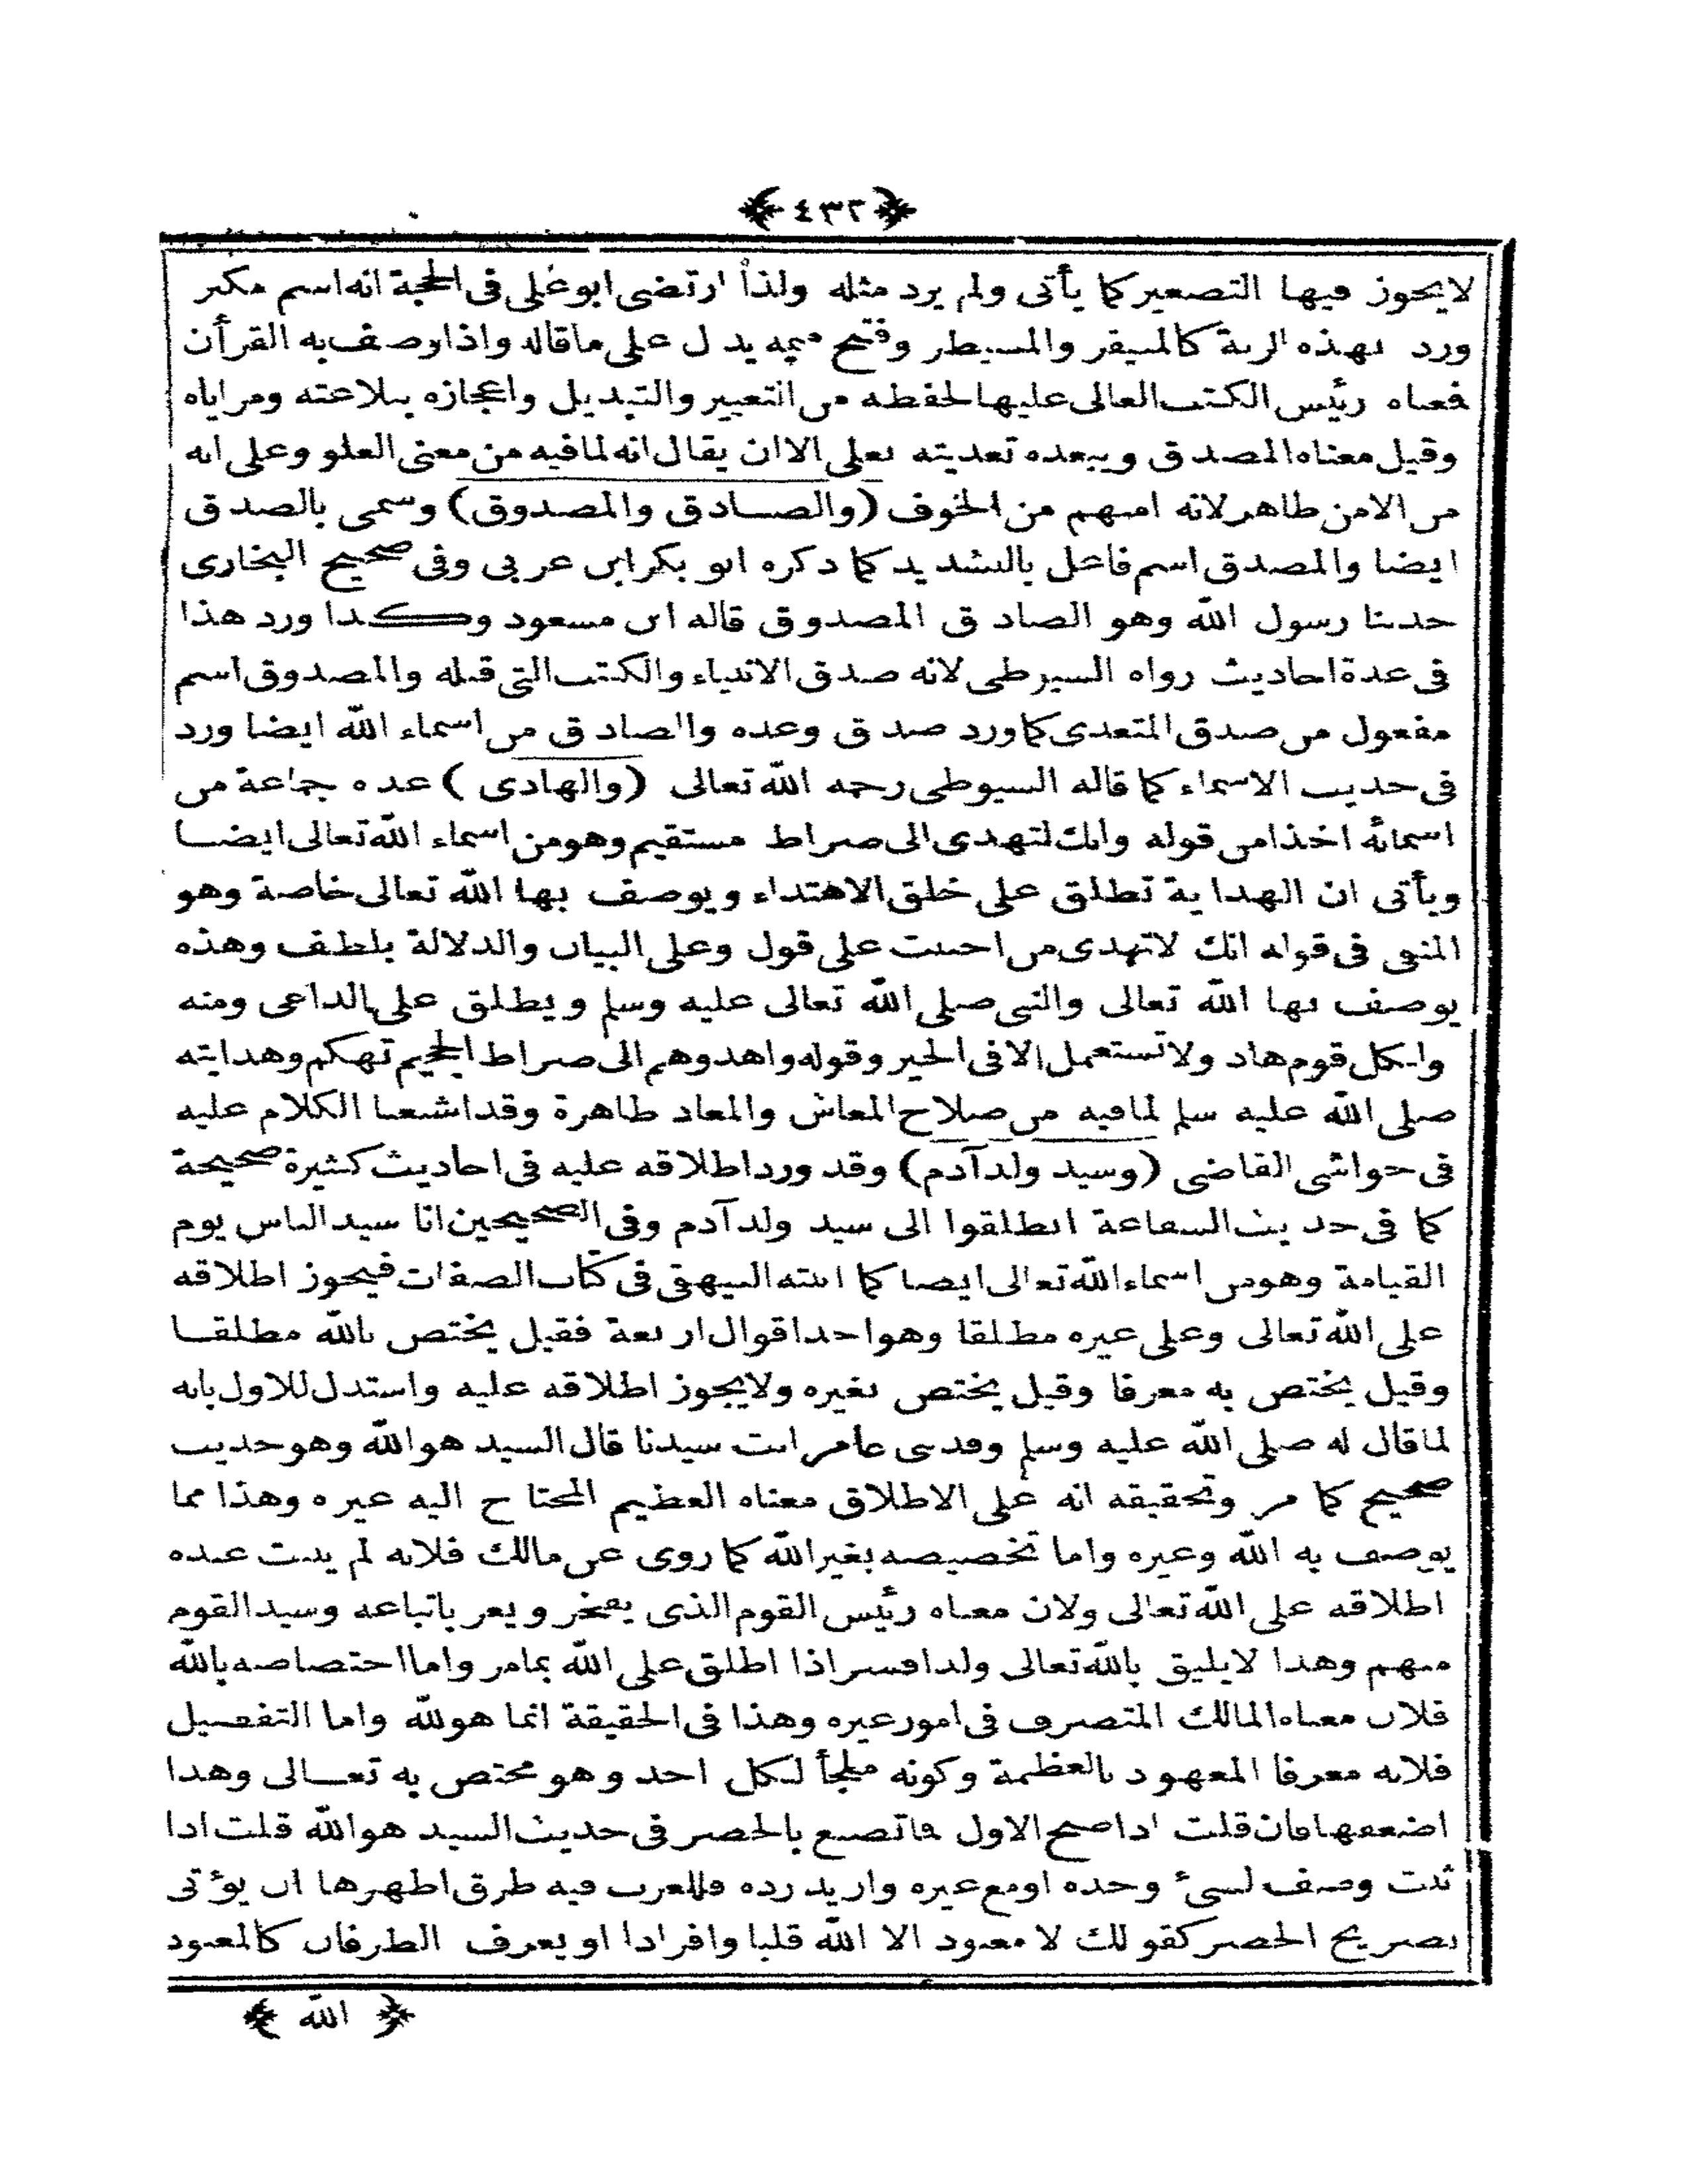 ﴿٤٣٢﴾
لايجوز فيها التصغير كما يأتى ولم يرد مثله ولذا ارتضى ابو على فى الحجة انه اسم مكبر
ورد بهذه الزنة كالمبيقر والمسيطر وفتح ميمه يدل على ماقاله واذا وصف به القرأن
فمعناه رئيس الكتب العالى عليها لحفظه من التغيير والتبديل واعجازه ببلاغته ومزاياه
وقيل معناه المصدق ويبعده تعديته بعلى الا ان يقال انه لمافيه من معنى العلو وعلى انه
من الامن ظاهر لانه امنهم من الخوف (والصادق والمصدوق) وسمى بالصدق
ايضا والمصدق اسم فاعل بالتشديد كما ذكره ابو بكر ابن عربى وفى صحيح البخارى
حدثنا رسول الله وهو الصادق المصدوق قاله ابن مسعود وكذا ورد هذا
فى عدة احاديث رواه السيوطى لانه صدق الانبياء والكتب التى قبله والمصدوق اسم
مفعول من صدق المتعدى كما ورد صدق وعده والصادق من اسماء الله ايضا ورد
فى حديث الاسماء كما قاله السيوطى رحمه الله تعالى (والهادى) عده جماعة من
اسمائه اخذا من قوله وانك لتهدى الى صراط مستقيم وهو من اسماء الله تعالى ايضا
ويأتى ان الهداية تطلق على خلق الاهتداء ويوصف بها الله تعالى خاصة وهو
المنفى فى قوله انك لاتهدى من احببت على قول وعلى البيان والدلالة بلطف وهذه
يوصف بها الله تعالى والنبى صلى الله تعالى عليه وسلم ويطلق على الداعى ومنه
ولكل قوم هاد ولاتستعمل الا فى الخير وقوله واهدوهم الى صراط الجحيم تهكم وهدايته
صلى الله عليه سلم لمافيه من صلاح المعاش والمعاد ظاهرة وقد اشبعنا الكلام عليه
فى حواشى القاضى (وسيد ولد آدم) وقد ورد اطلاقه عليه فى احاديث كثيرة صحيحة
كما فى حديث الشفاعة انطلقوا الى سيد ولد آدم وفى الصحيحين انا سيد الناس يوم
القيامة وهو من اسماء الله تعالى ايضا كما اثبته البيهقى فى كتاب الصفات فيجوز اطلاقه
على الله تعالى وعلى غيره مطلقا وهو احد اقوال اربعة فقيل يختص بالله مطلقا
وقيل يختص به معرفا وقيل يختص بغيره ولايجوز اطلاقه عليه واستدل للاول بانه
لما قال له صلى الله عليه وسلم وفد بنى عامر انت سيدنا قال السيد هو الله وهو حديث
صحيح كما مر وتحقيقه انه على الاطلاق معناه العظيم المحتاج اليه غيره وهذا مما
يوصف به الله وغيره واما تخصيصه بغير الله كما روى عن مالك فلانه لم يثبت عنده
اطلاقه على الله تعالى ولان معناه رئيس القوم الذى يفتخر ويعز باتباعه وسيد القوم
منهم وهذا لايليق بالله تعالى ولذا فسر اذا اطلق على الله بمامر واما اختصاصه بالله
فلان معناه المالك المتصرف فى امور غيره وهذا فى الحقيقة انما هو لله واما التفصيل
فلانه معرفا المعهود بالعظمة وكونه ملجأ لكل احد وهو مختص به تعالى وهذا
اضعفها فان قلت اذا صح الاول فما تصنع بالحصر فى حديث السيد هو الله قلت اذا
ثبت وصف لشئ وحده او مع غيره واريد رده فللعرب فيه طرق اظهرها ان يؤتى
بصريح الحصر كقولك لا معبود الا الله قلبا وافرادا او يعرف الطرفان كالمعبود
﴿الله﴾